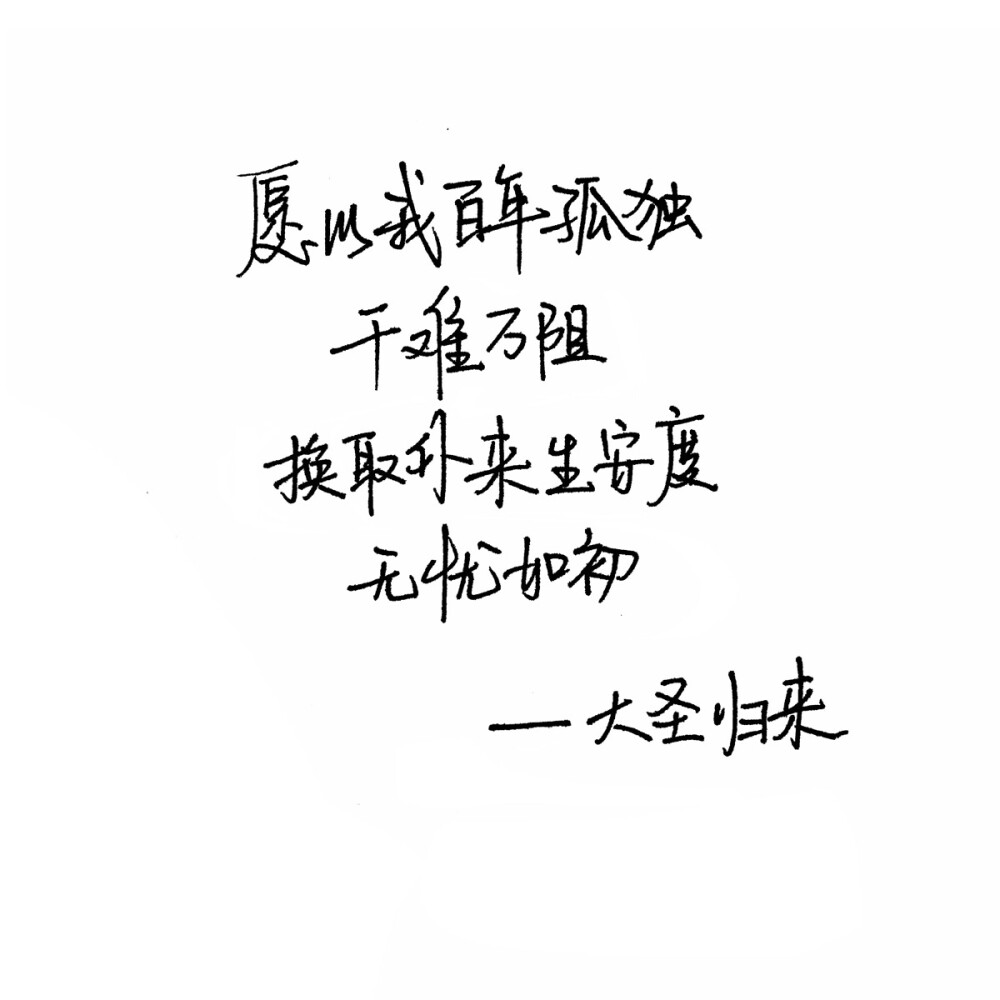 愿以我百年孤独
千难万阻
换取尔来生安度
无忧如初
——大圣归来